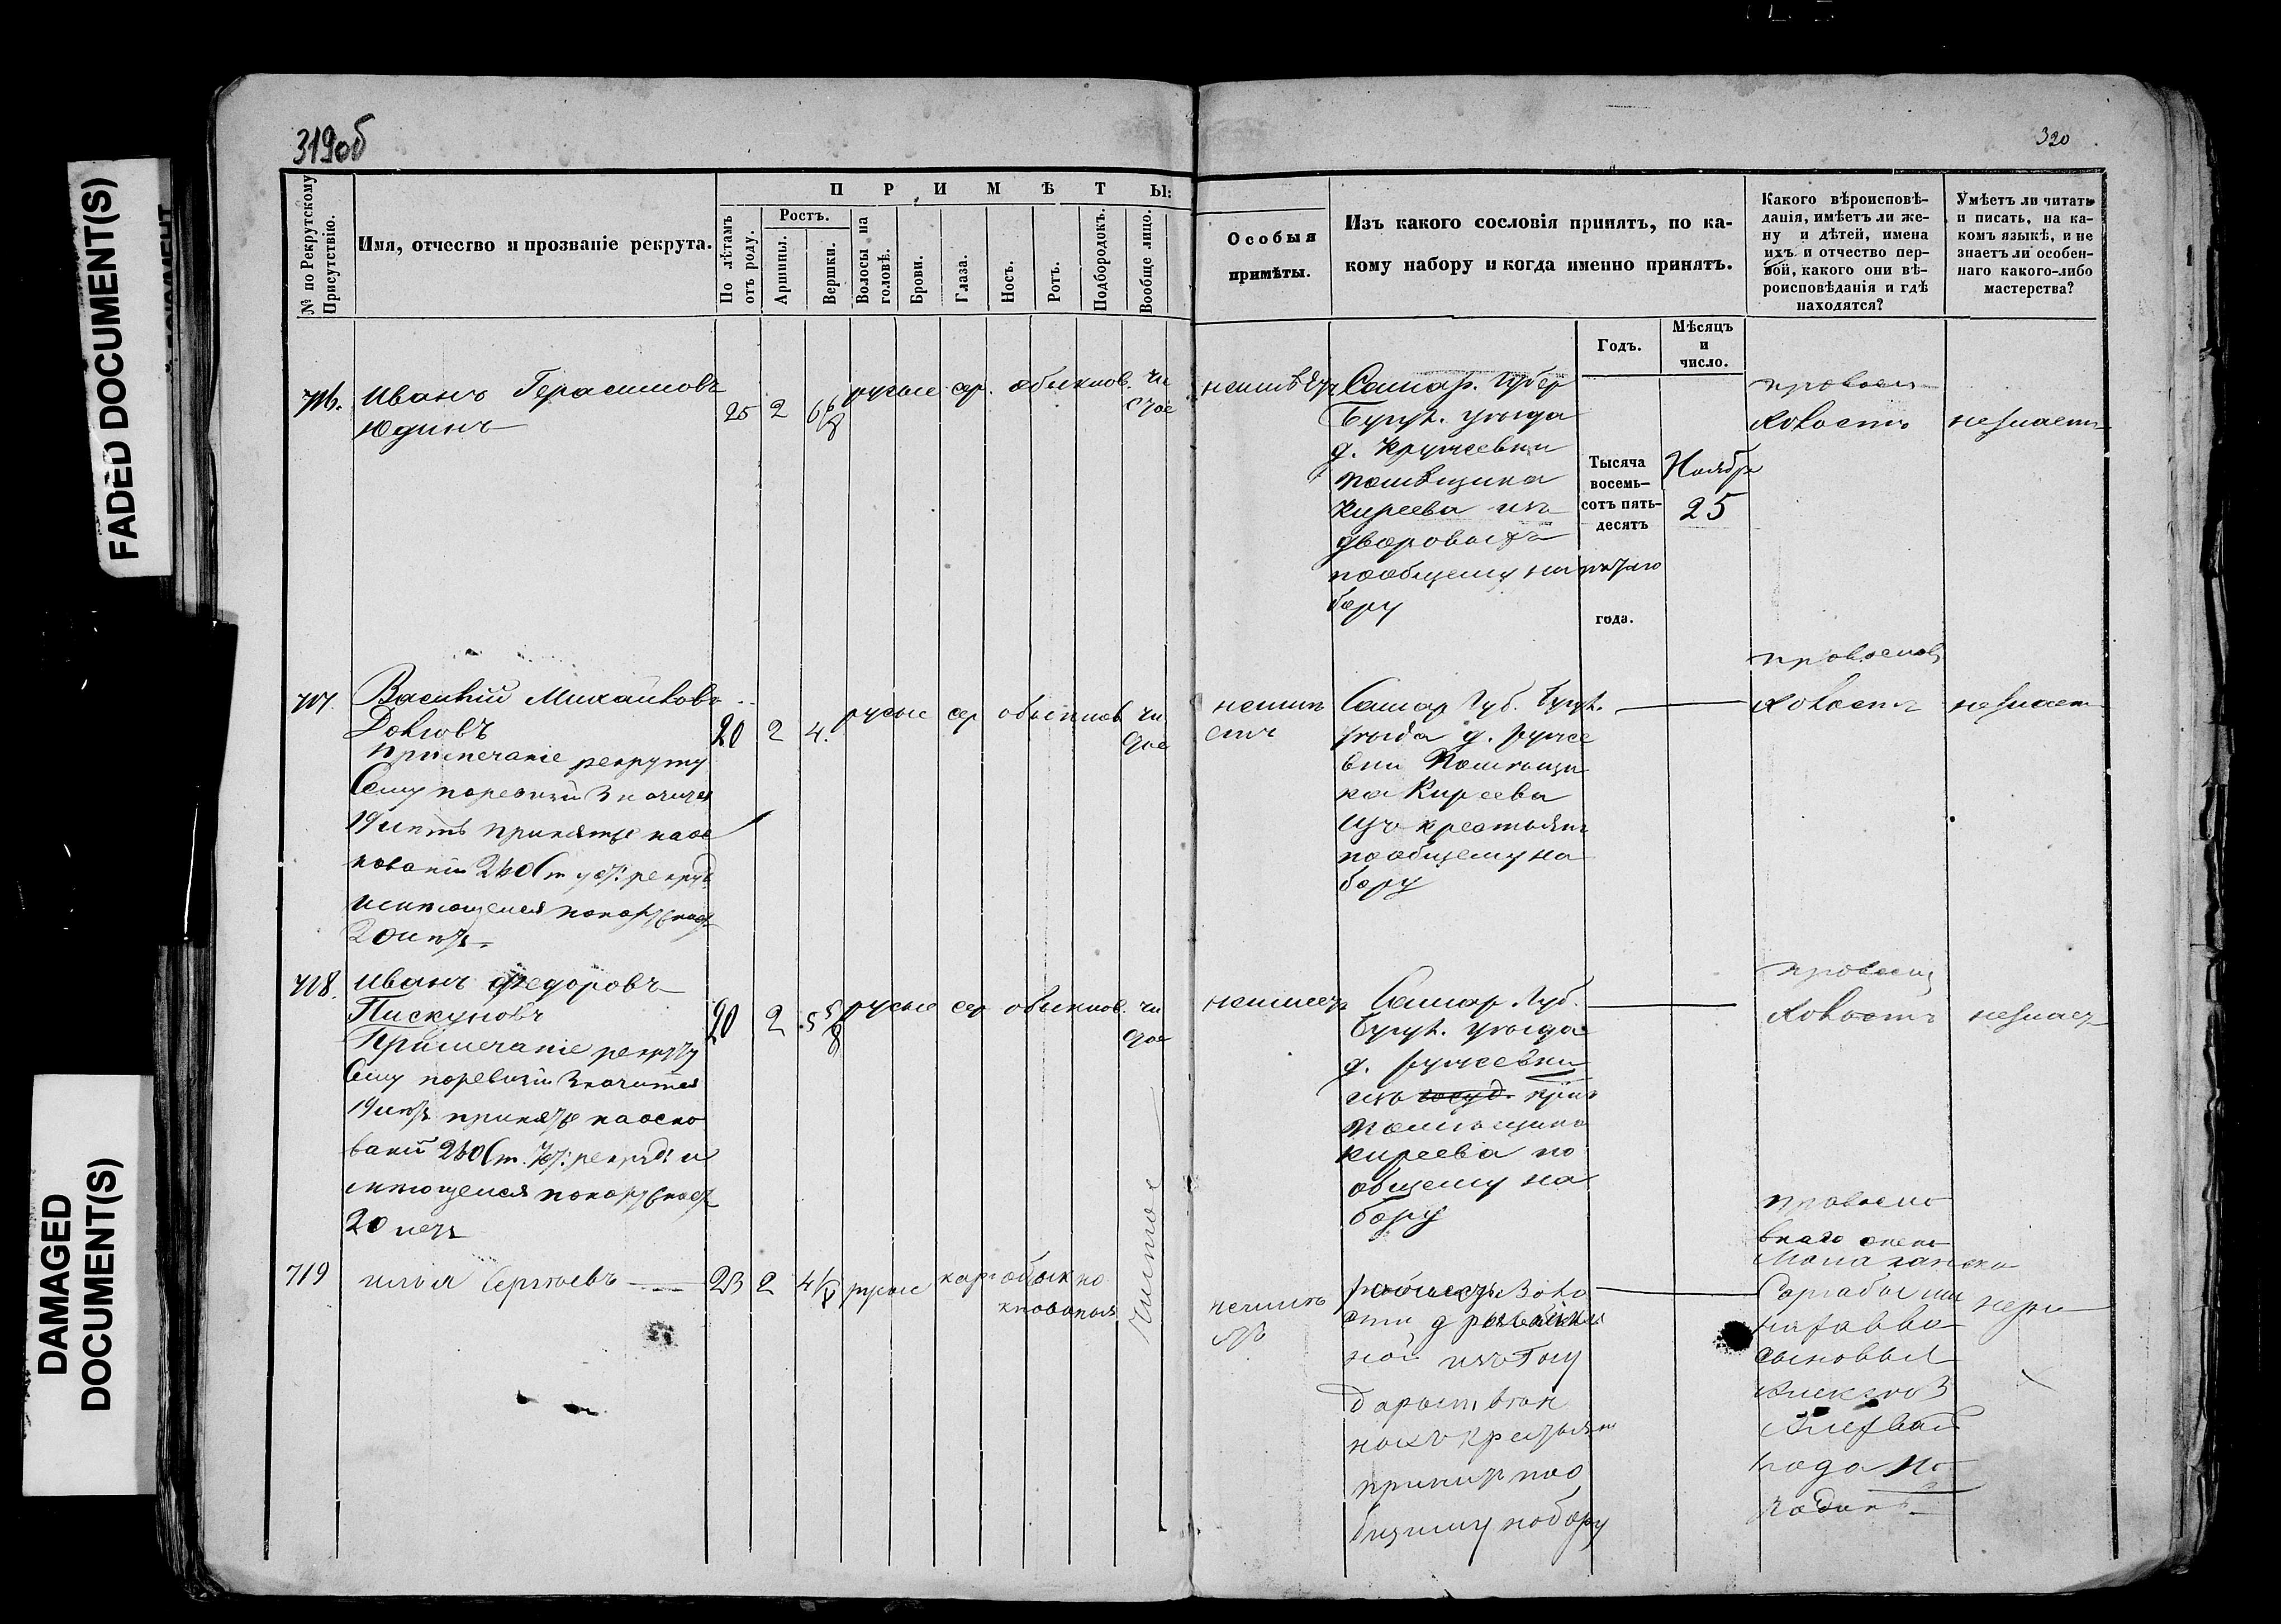 FADED DOCUMENT(S)
DAMAGED
DOCUMENT(S)
319об
320
№ по Рекрутскому
Присутствію.
Имя, отчество и прозваніе рекрута.
ПРИМѢТЫ:
По лѣтамъ
отъ роду.
Ростъ.
Аршины.
Вершки.
Волосы на
головѣ.
Брови.
Глаза.
Носъ.
Ротъ.
Подбородокъ.
Вообще лицо.
Особыя
примѣты.
Изъ какого сословія принятъ, по ка-
кому набору и когда именно принятъ.
Годъ.
Мѣсяцъ
и
число.
Какого вѣроисповѣ-
данія, имѣетъ ли же-
ну и дѣтей, имена
ихъ и отчество пер-
вой, какого они вѣ-
роисповѣданія и гдѣ
находятся?
Умѣетъ ли читать
и писать, на ка-
комъ языкѣ, и не
знаетъ ли особен-
наго какого-либо
мастерства?
716.
Иванъ Герасимовъ
Юдинъ
25 2 6 6/8
русые сер. обыкнов. чи
стое
неимѣетъ
Самар. Губер
Бугул. уѣзда
д. Кружевки
помѣщика
Киреева изъ
дворовыхъ
пообщему на
бору
Тысяча
восемь-
сотъ пять-
десятъ
пятаго
года.
Ноябр
25
православ
холостъ
незнаетъ
717
Василій Михайловъ
Долговъ
20 2 4.
русые сер обыкнов чи
стое
Примечаніе рекруту
Сему поревизіи значится
19 лѣтъ принятъ наос
нованіи 240 Ст уст: рекруд
имѣющемся понаружност
20 лѣтъ
неимѣ
етъ
Самар Губ. Бугул.
уѣзда д. Руже
вки Помѣщи
ка Киреева
изъ крестьянъ
пообщему на
бору
православ
холостъ
незнаетъ
718.
Иванъ Федоровъ
Пискуновъ
20 2 5 5/8
русые сер обыкнов. чи
стое
Примечаніе рекруту
Сему поревизіи значится
19 лѣтъ принятъ наосно
ваніи 240 Ст. уст: рекруд: и
мѣющемся понаружност
20 летъ
неимеетъ
Самар. Губ.
Бугул. уѣзда
д. Ружевки
изъ госуд.
помѣщика
киреева по
общему на
бору
православ
холостъ
незнает
719
Илья Сергѣевъ
23 2 4
русые кар обыкно
Чистое
неимѣ
етъ
Воло
сти д
ной изъ Госу
дарствен
ныхъ крестьян
принят поо
бщему набору
правосла
внаго жена
сыновья
Алексѣй 3
года на
родинѣ